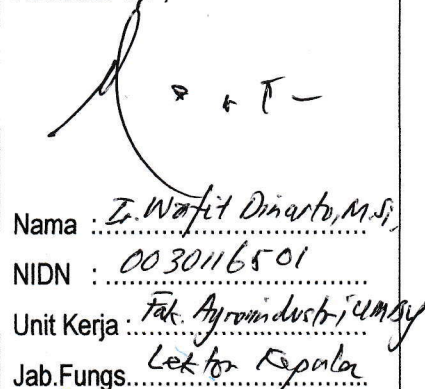 Nama : Ir. Wafit Dinarto, M.Si,
NIDN : 0030116501
Unit Kerja : Fak. Agroindustri UMBY
Jab.Fungs. Lektor Kepala